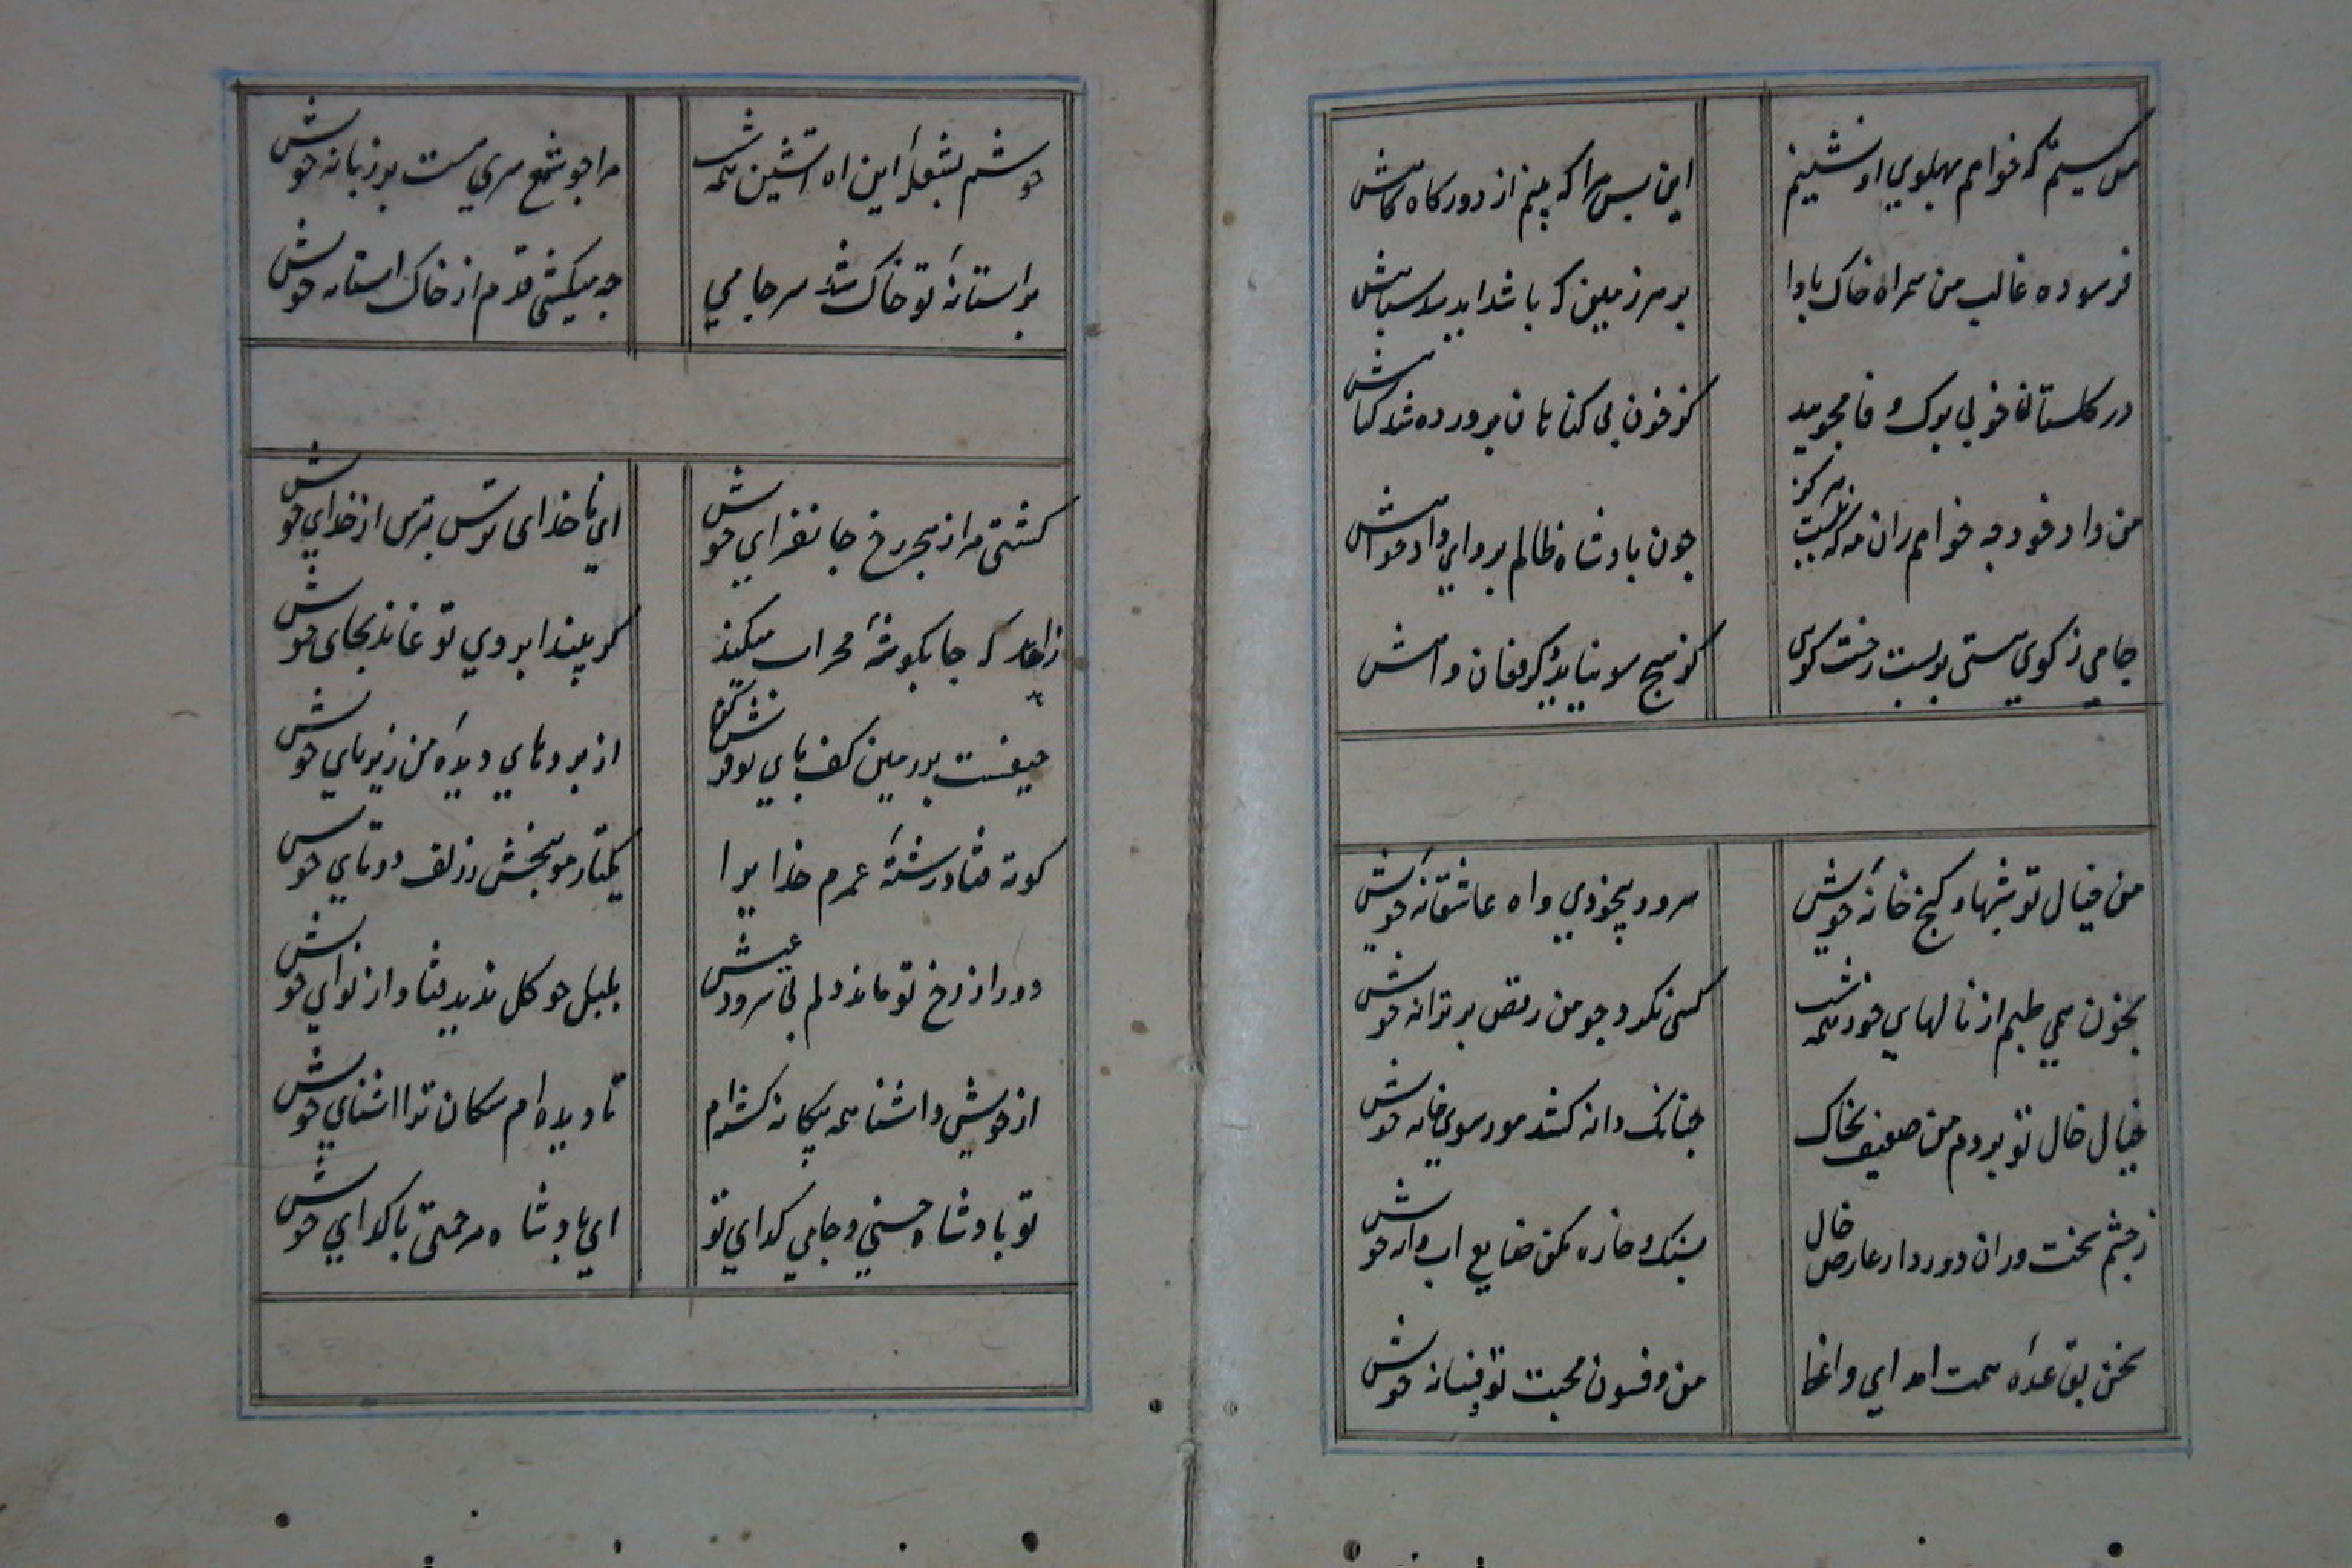 من کیستم که خواهم پهلوی او نشینم
این بس مرا که بینم از دور گاه گاهش
فرسوده غالب من همراه خاک بادا
بر هر زمین که باشد
در گلستان خوبی بوک وفا مجویید
کز خون بی گناهان پرورده شد گیاهش
من داد خود چه خواهم زان مه که نیست هرگز
چون پادشاه ظالم پروای دادخواهش
جامی ز کوی هستی بربست رخت
کز هیچ سو نیاید دیگر فغان و آهش
من خیال تو شبها و کنج خانه خویش
سرود بیخودی و آه عاشقانه خویش
بخون همی طپم از نالهای خود همه شب
کسی نکرد چو من رقص بر ترانه خویش
خیال خال تو بردم من ضعیف بخاک
چنانک دانه کشد مور سوی خانه خویش
ز چشم سخت وران دور دار عارض خال
بسنگ خاره مکن ضایع آب و دانه خویش
سخن بقاعده همت آمد ای واعظ
من و فسون محبت تو و فسانه خویش
خوشم بشعله این آه آتشین همه شب
مرا چو شمع سری هست بر زبانه خویش
بر آستانه تو خاک شد سر جامی
چه میکشی قدم از خاک آستانه خویش
کشتی مرا ز هجر رخ جانفزای خویش
ای ناخدای ترس بترس از خدای خویش
زاهد که جا بگوشه محراب میکند
گر بیند ابروی تو نماند بجای خویش
حیفست بر زمین کف پای تو
از پردهای دیده من زیر پای خویش
کوته فتاد رشته عمرم خدایرا
یکتار مو ببخش ز زلف دوتای خویش
دور از رخ تو ماند دلم بی سرود عیش
بلبل چو گل ندید فتاد از نوای خویش
از خویش و آشنا همه بیگانه گشته‌ام
تا دیده‌ام سگان ترا آشنای خویش
تو پادشاه حسنی و جامی گدای تو
ای پادشاه مرحمتی با گدای خویش